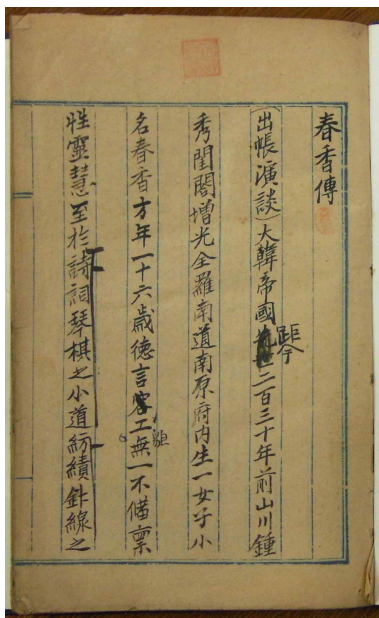 春香傳
(出帳演談)大韓帝國距今二百三十年前山川鍾
秀閨閤增光全羅南道南原府內生一女子小
名春香方年一十六歲德言容工無一不備稟
性靈慧至於詩詞琴棋之小道紡績針線之